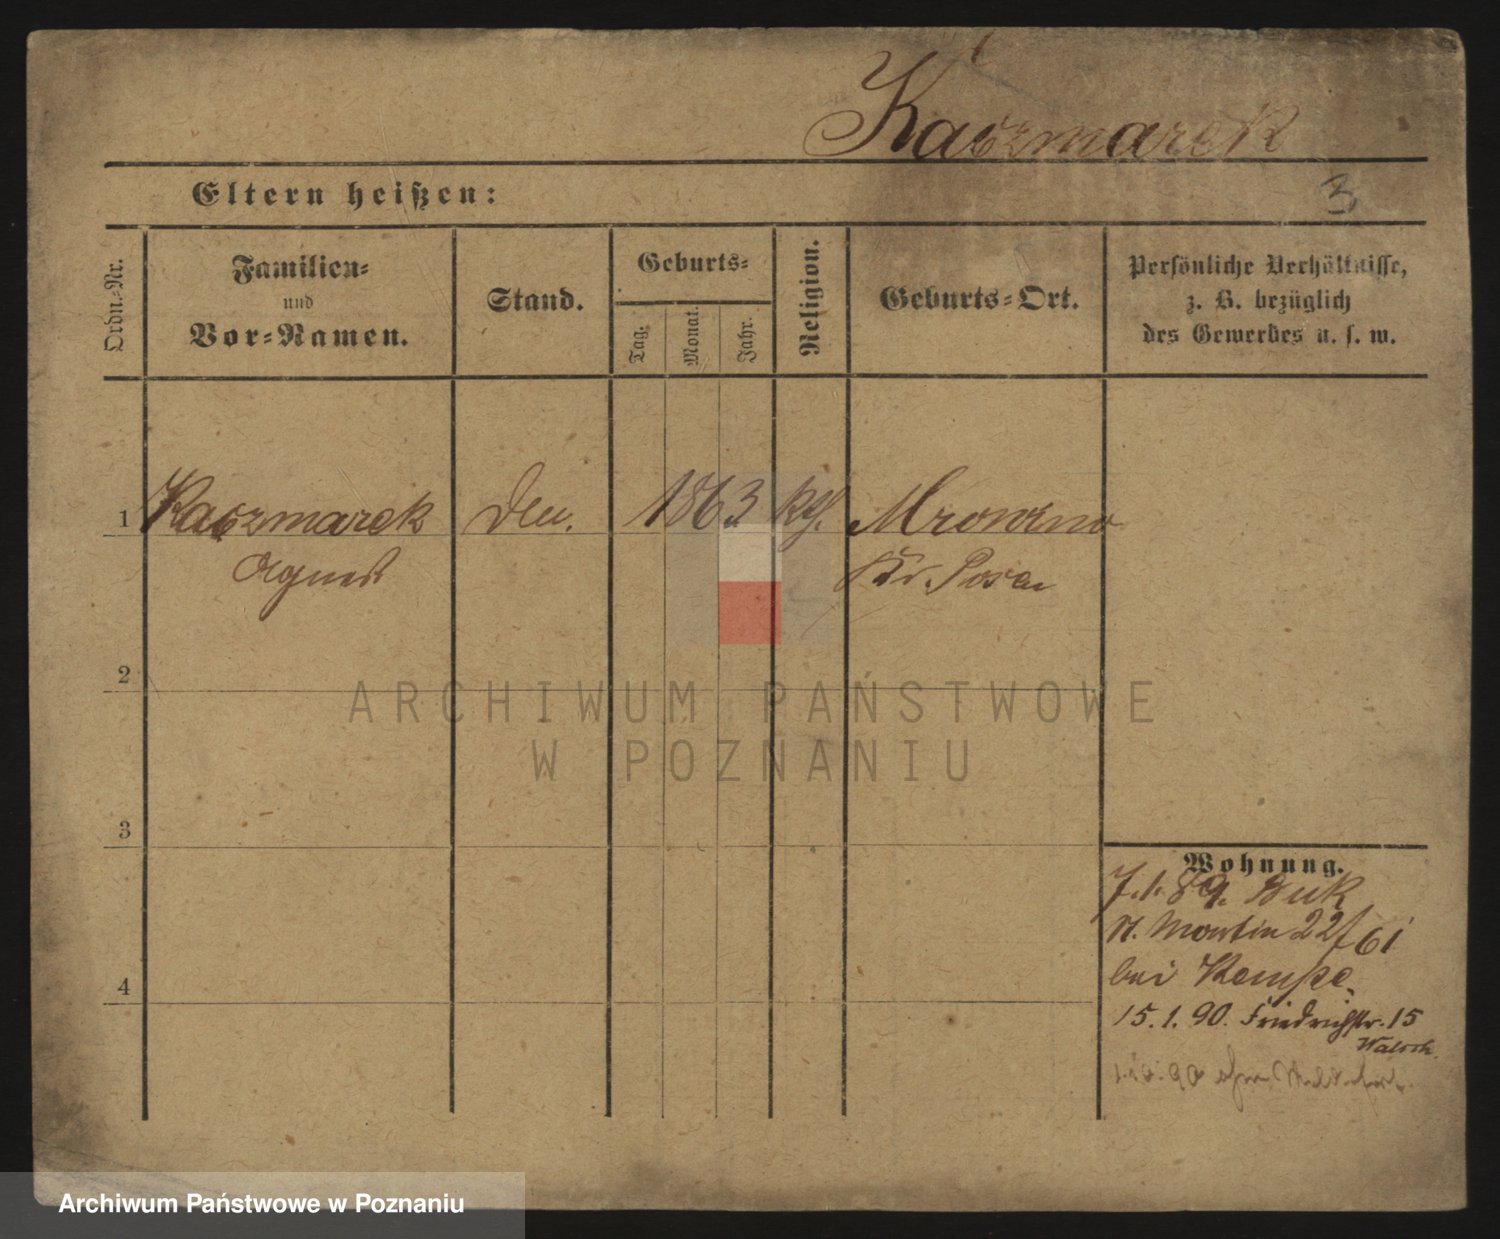 Kaczmarek
Eltern heißen:
3
Ordn.-Nr.
Familien-
und
Vor-Namen.
Stand.
Geburts-
Tag.
Monat.
Jahr.
Religion.
Geburts-Ort.
Persönliche Verhältnisse,
z. B. bezüglich
des Gewerbes u. s. w.
1 Kaczmarek 1863 kth. Mrowino
Agnes Kr. Posen
2
3
4
Wohnung.
7.1.89. Buk
St. Martin 22/61
bei Kempe.
15.1.90. Friedrichstr. 15
ARCHIWUM PAŃSTWOWE
W POZNANIU
Archiwum Państwowe w Poznaniu